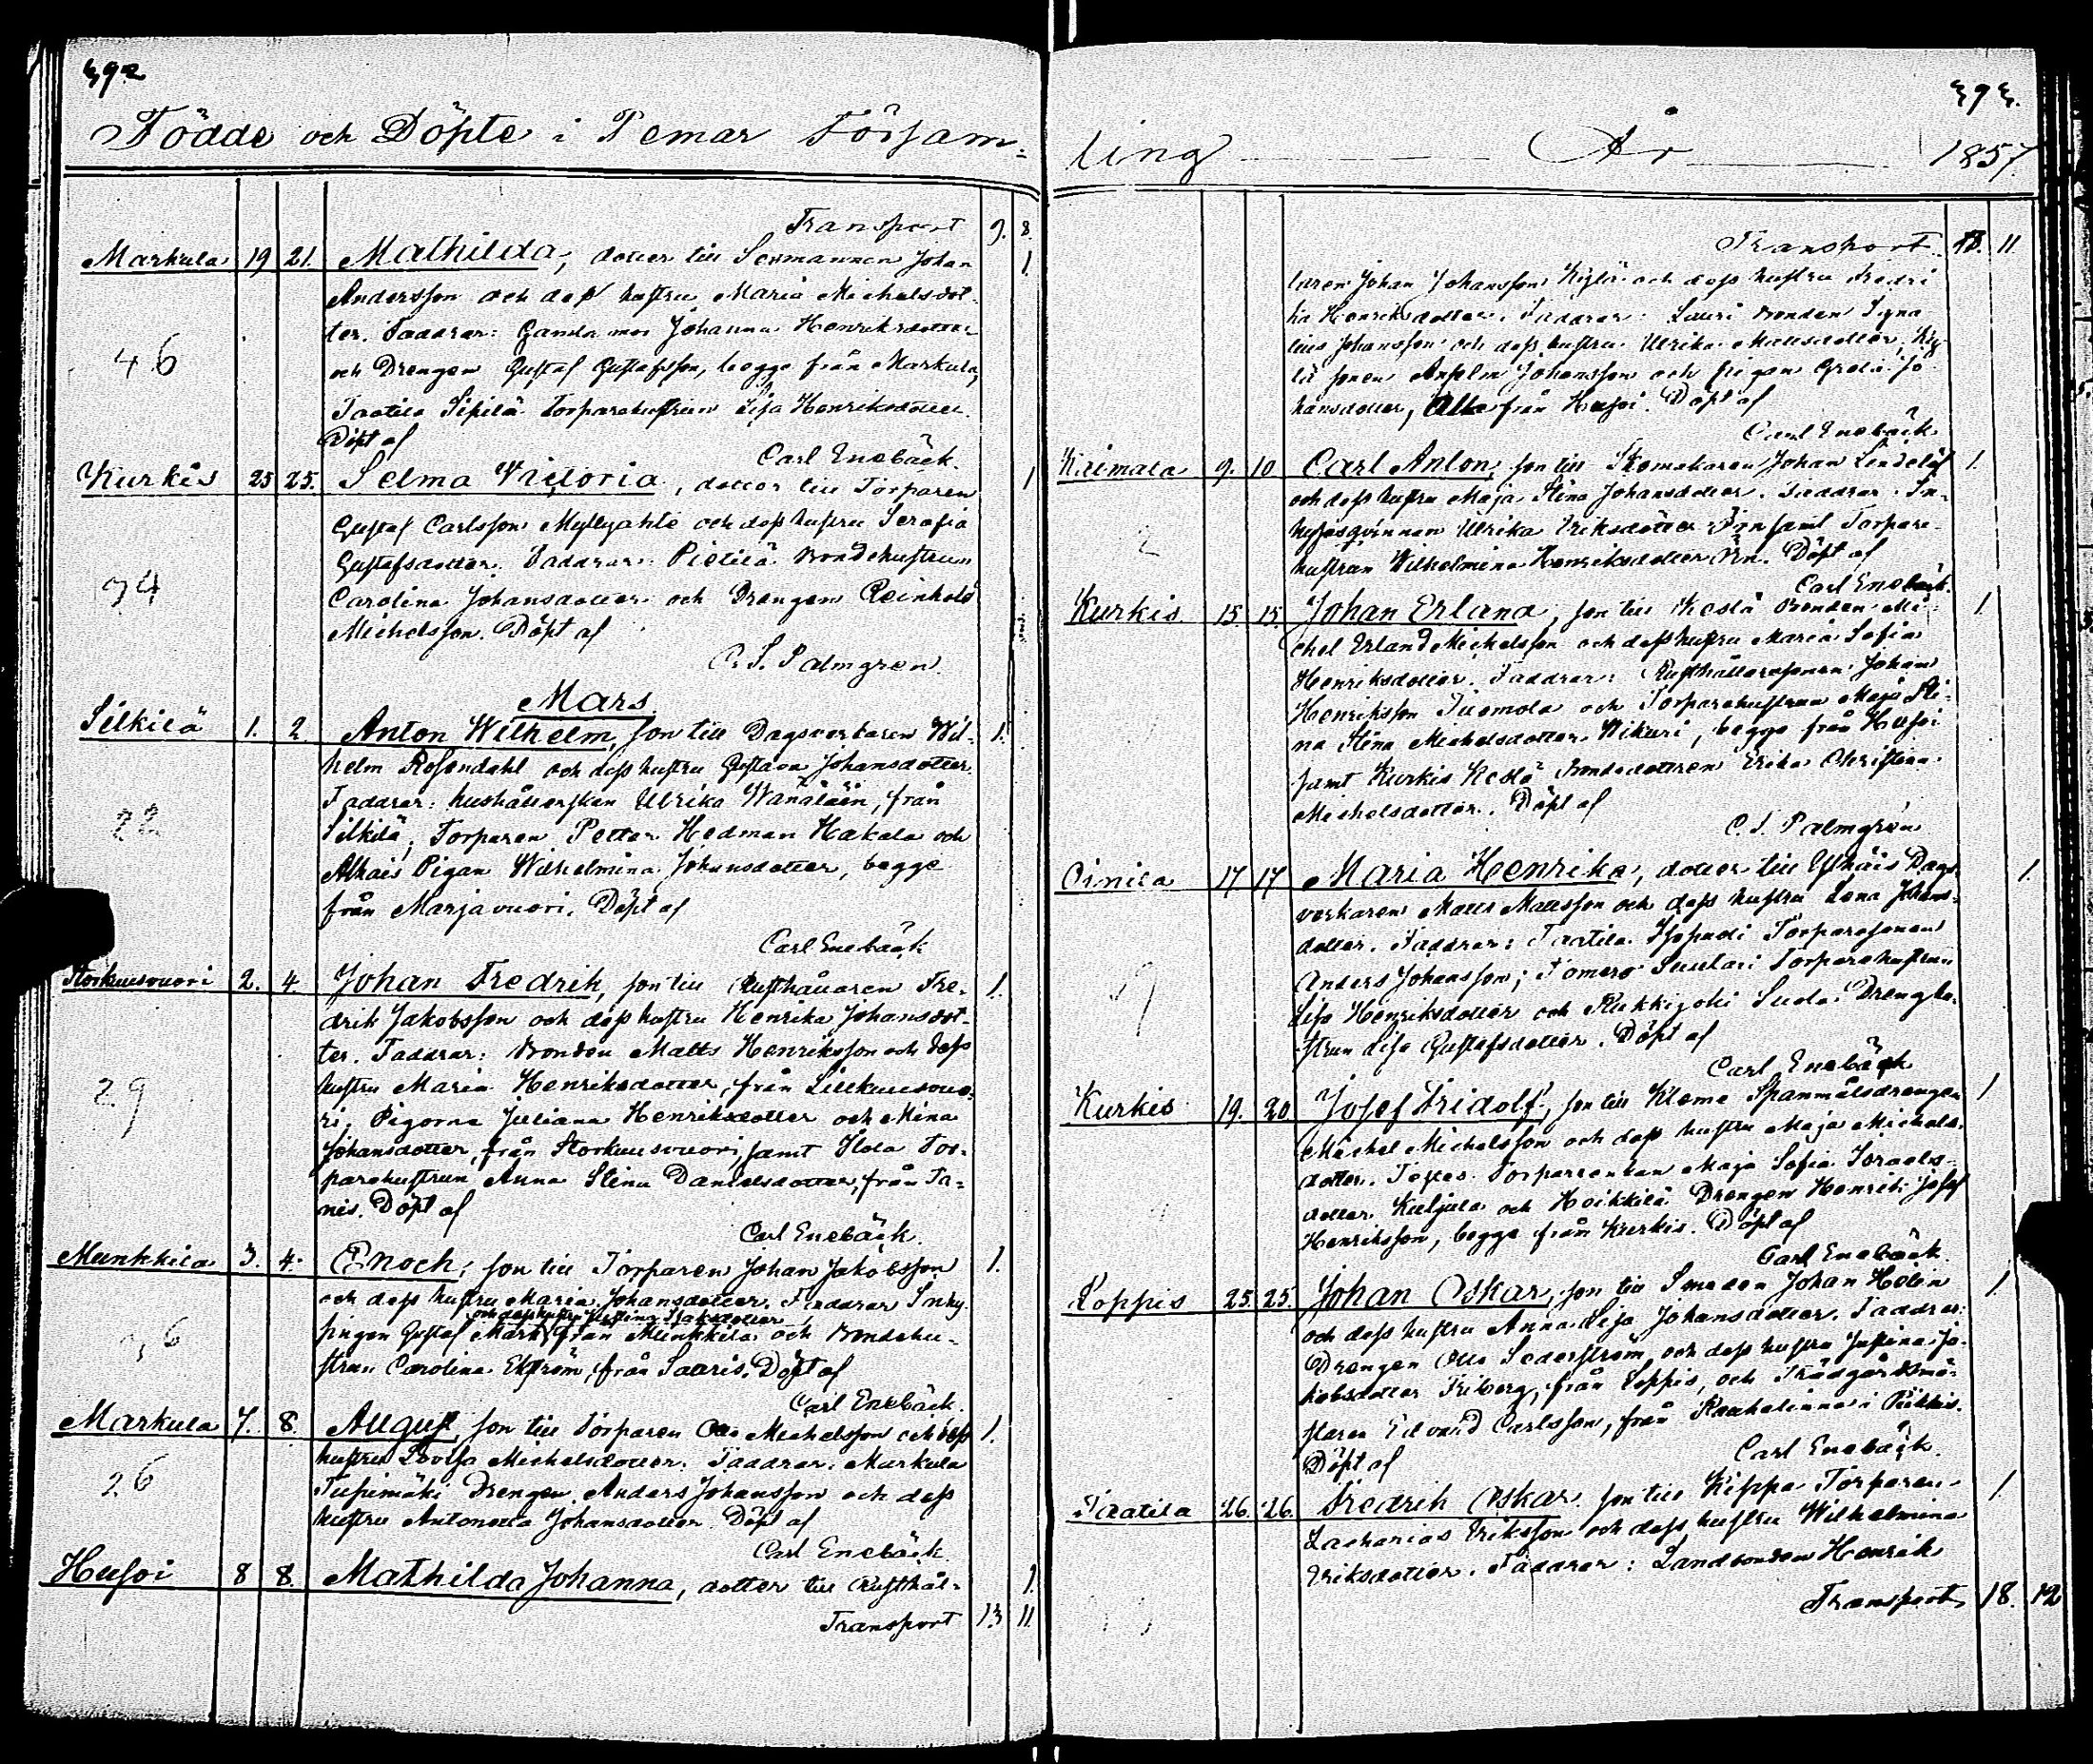 492
Födde och Döpte i Pemar Försam=
Transport 9. 8.
Markula 19 21. Mathilda, dotter till Sexmannen Johan 1.
Andersson och dess hustru Maria Michelsdot-
ter. Faddrar: Gamla mor Johanna Henriksdotter
och Drengen Gustaf Gustafsson, begge från Markula,
46
Taatila Sipilä Torparehustrun Lisa Henriksdotter.
Döpt af
Carl Enebäck.
Kurkis 25 25. Selma Victoria, dotter till Torparen 1
Gustaf Carlsson Myllyahte och dess hustru Serafia
Gustafsdotter. Faddrar: Pietilä Bondehustrun
Carolina Johansdotter och Drengen Reinhold
34
Michelsson. Döpt af
C. S. Palmgren.
Mars
Silkilä 1. 2. Anton Wilhelm, son till Dagsverkaren Wil- 1.
helm Rosendahl och dess hustru Gustava Johansdotter.
Faddrar: hushållerskan Ulrika Wänäläin, från
22
Silkilä, Torparen Petter Hedman Hakala och
Alhais Pigan Wilhelmina Johansdotter, begge
från Marjavuori. Döpt af
Carl Enebäck
Storkuusvuori 2. 4 Johan Fredrik, son till Rusthållaren Fre- 1.
drik Jakobsson och dess hustru Henrika Johansdot-
ter. Faddrar: Bonden Matts Henriksson och dess
hustru Maria Henriksdotter, från Lillkuusvuo-
29
ri, Pigorna Juliana Henriksdotter och Mina
Johansdotter, från Storkuusvuori, samt Ylola Tor-
parehustrun Anna Stina Danielsdotter, från Ta-
nis. Döpt af
Carl Enebäck.
Munkkila 3. 4. Enoch, son till Torparen Johan Jakobsson 1.
och dess hustru Maria Johansdotter. Faddrar Inhy-
och dess hustru Justina Isaksdotter
singen Gustaf Mark, från Munkkila och Bondehu-
36
strun Carolina Ekström, från Sauris. Döpt af
Carl Enebäck.
Markula 7. 8. August, son till Torparen Otto Michelsson och dess 1.
hustru Lovisa Michelsdotter. Faddrar. Markula
26
Drengen Anders Johansson och dess
hustru Antonetta Johansdotter. Döpt af
Carl Enebäck.
Husoi 8 8. Mathilda Johanna, dotter till Rusthål- 1.
Transport 13 11.
493.
ling År 1857.
Transport 13. 11
laren Johan Johansson Kylä och dess hustru Fredri
ka Henriksdotter. Faddrar: Lauri Bonden Igna
tius Johansson och dess hustru Ulrika Mattsdotter, Ky-
lä sonen Anselm Johansson och pigan Greta Jo-
hansdotter, Alla från Husoi. Döpt af
Carl Enebäck
Kaimala 9. 10 Carl Anton, son till Skomakaren Johan Lindelöf 1.
och dess hustru Maja Stina Johansdotter. Faddrar: In-
2
hysesqvinnan Ulrika Eriksdotter samt Torpare-
hustrun Wilhelmina Henriksdotter Örn. Döpt af
Carl Enebäck.
Kurkis 15. 15. Johan Erland, son till Keskä Bonden Mi- 1.
chel Erland Michelsson och dess hustru Maria Sofia
Henriksdotter. Faddrar: Rusthållaresonen Johan
Henriksson Tuomola och Torparehustrun Maja Sti-
na Stina Michelsdotter Wikuri, begge från Husoi
samt Kurkis Keskä Bondedottren Erika Christina
Michelsdotter. Döpt af
C. S. Palmgren
Oinila 17 17 Maria Henrika, dotter till Ylhäis Dags- 1.
verkaren Matts Mattsson och dess hustru Lena Johans-
dotter. Faddrar: Taatila Torparesonen
Anders Johansson; Tomero Suutari Torparehustrun
9
Lisa Henriksdotter och Rukkijoki Suola Drenghu-
strun Lisa Gustafsdotter. Döpt af
Carl Enebäck
Kurkis 19. 20 Josef Fridolf, son till Klome Spanmålsdrengen 1
Michel Michelsson och dess hustru Maja Michels-
dotter. Testes. Torparenkan Maja Sofia Israels-
dotter Kuljula och Heikkilä Drengen Henrik Josef
Henriksson, begge från Kurkis. Döpt af
Carl Enebäck.
Loppis 25. 25. Johan Oskar, son till Smeden Johan Helin 1.
och dess hustru Anna Lisa Johansdotter. Faddrar:
Drengen Otto Sederström och dess hustru Justina Ja-
kobsdotter Friberg, från Loppis, och Trädgårdsmä-
staren Edvard Carlsson, från Raukalinna i Piikkis.
Döpt af
Carl Enebäck.
Taatila 26. 26. Fredrik Oskar, son till Kippa Torparen 1.
Zacharias Eriksson och dess hustru Wilhelmina
Eriksdotter. Faddrar: Landbonden Henrik
Transport 18. 12